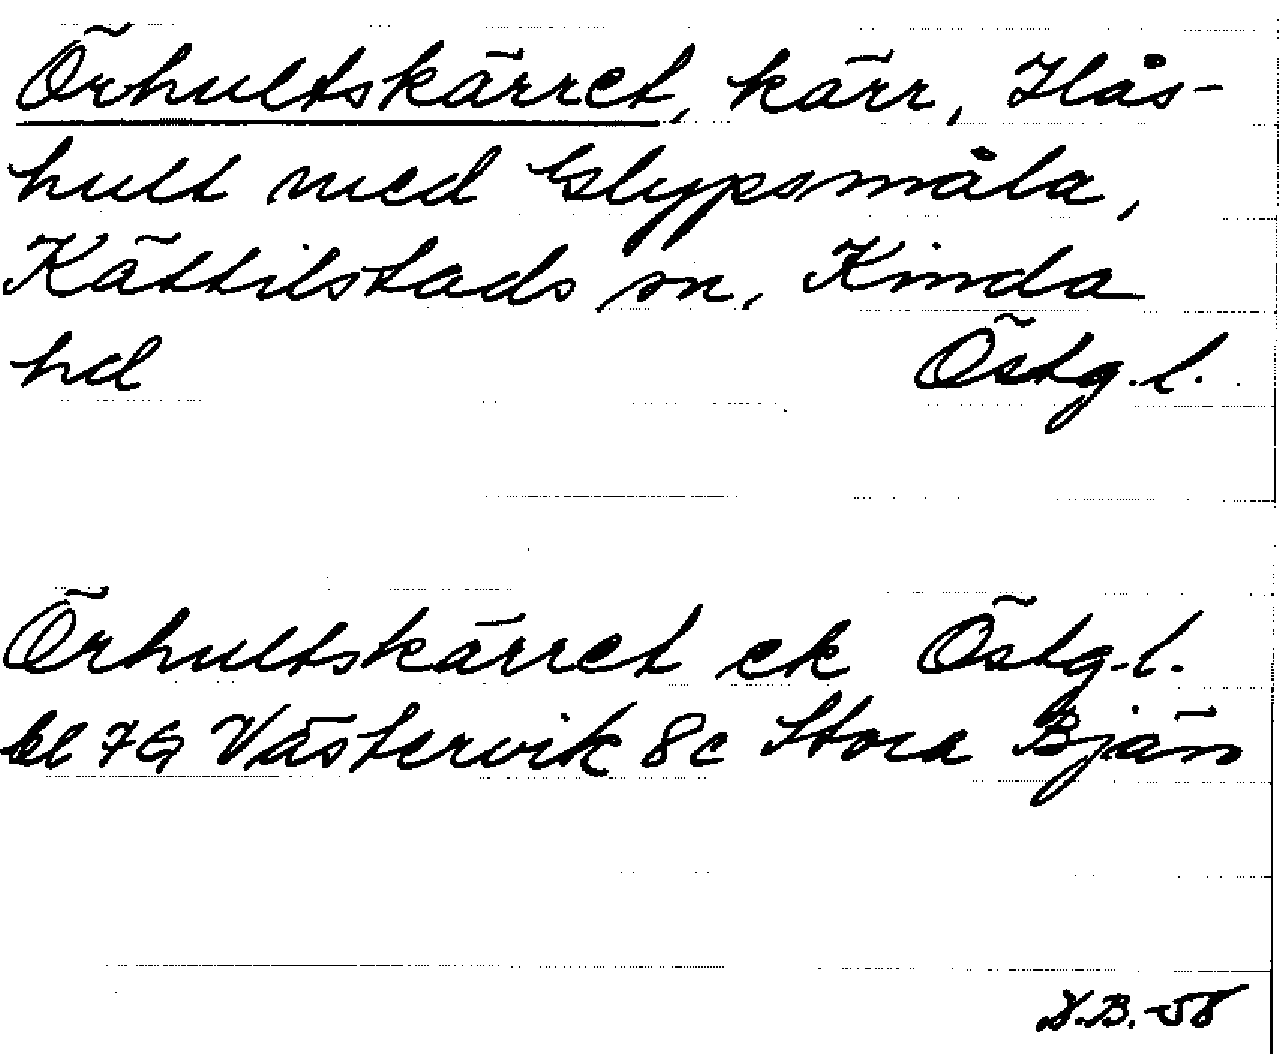 Örhultskärret, kärr, Hås-
hult med Glypsmåla,
Kättilstads sn, Kinda
hd Östg. l.
Örhultskärret ek Östg. l.
bl 7G Västervik 8c Stora Bjän
B. -58